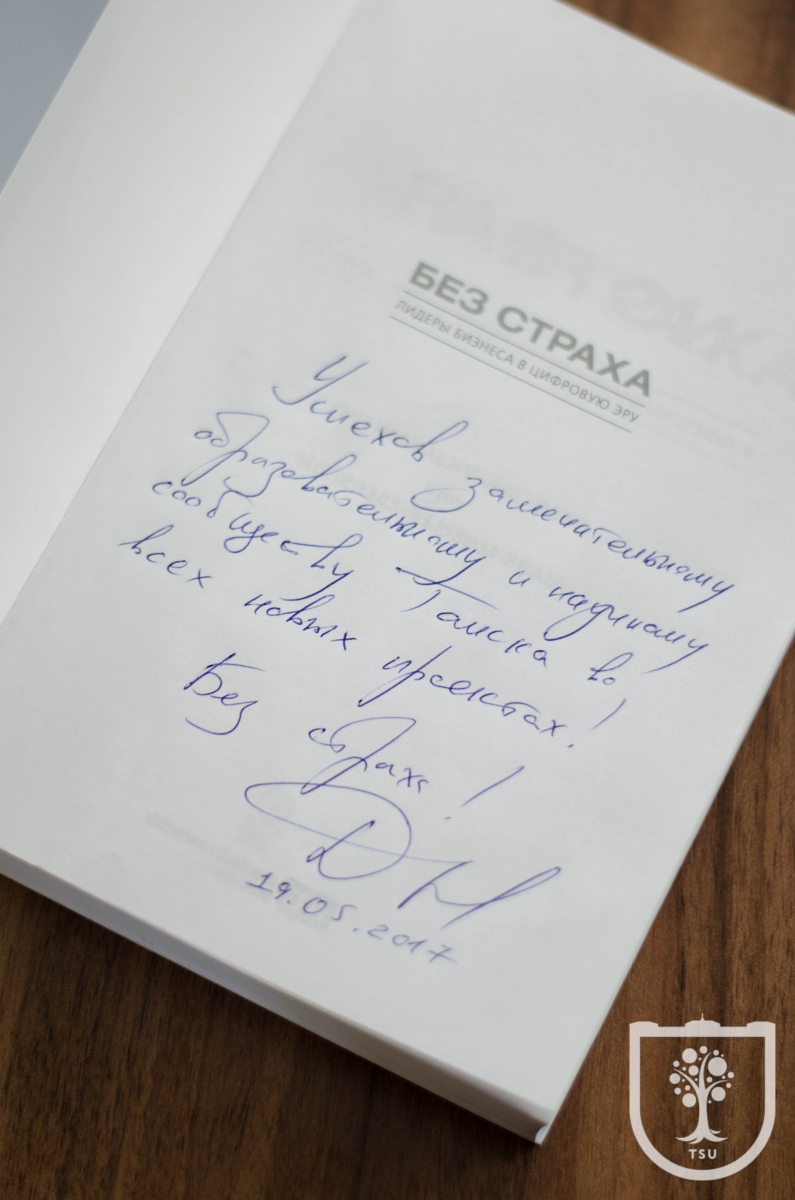 БЕЗ СТРАХА
ЛИДЕРЫ БИЗНЕСА В ЦИФРОВУЮ ЭРУ
Успехов замечательному
образовательному и научному
сообществу Томска во
всех новых проектах!
Без страха!
19.05.2017
TSU